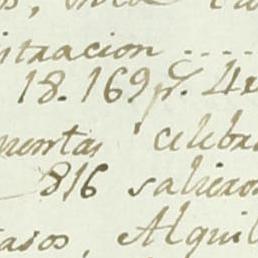 itracion ....
18.169 p.s 4
uentas celebra
816 salieron
asos, Alquil